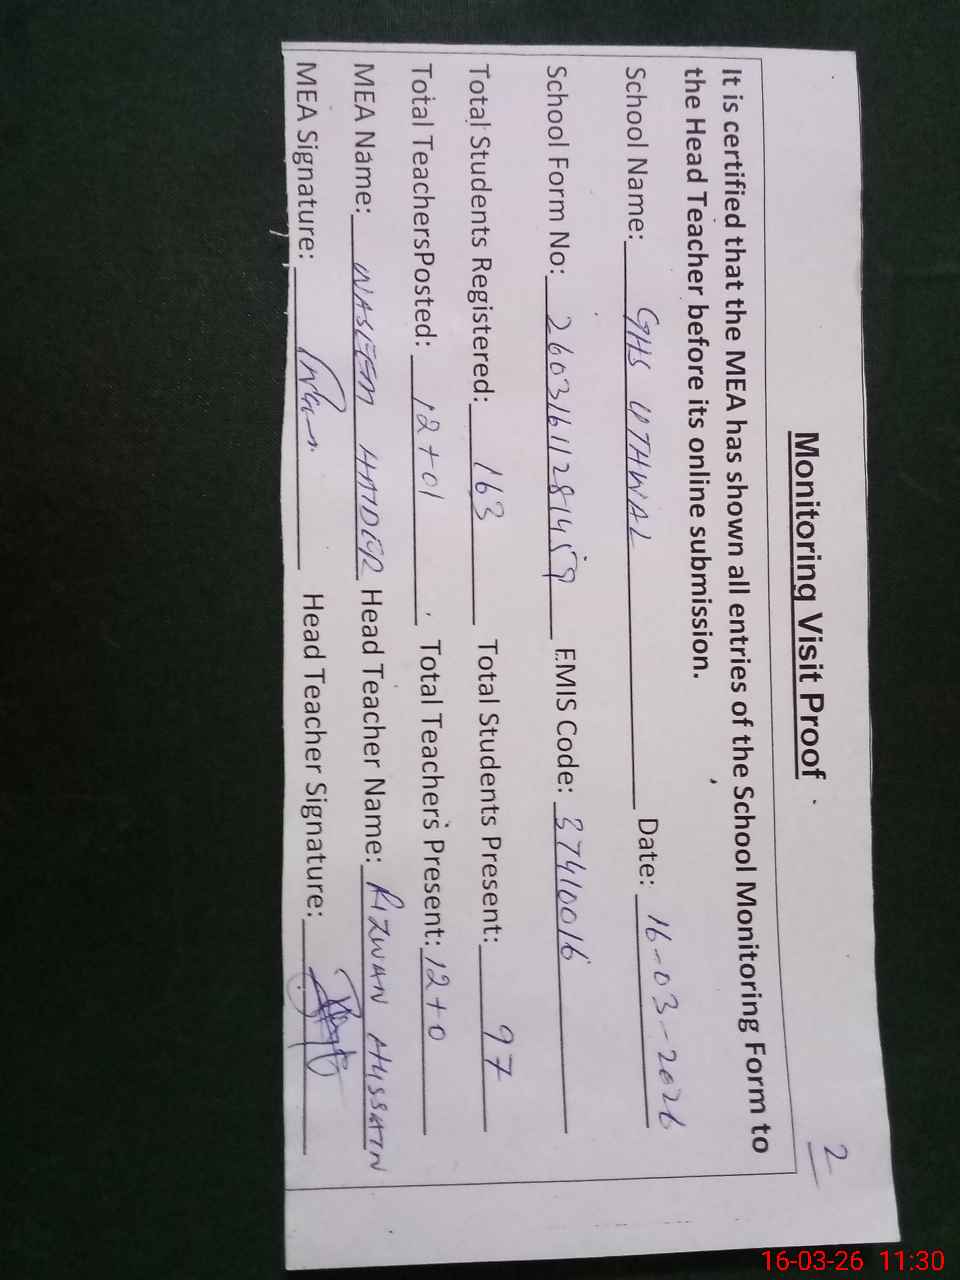 2
Monitoring Visit Proof
It is certified that the MEA has shown all entries of the School Monitoring Form to
the Head Teacher before its online submission.
School Name: GHS UTHWAL Date: 16-03-2026
School Form No: 26031611281459 EMIS Code: 37410016
Total Students Registered: 163 Total Students Present: 97
Total TeachersPosted: 12+01 Total Teachers Present: 12+0
MEA Name: WASEEM HAIDER Head Teacher Name: RIZWAN HUSSAIN
MEA Signature: Head Teacher Signature:
16-03-26 11:30